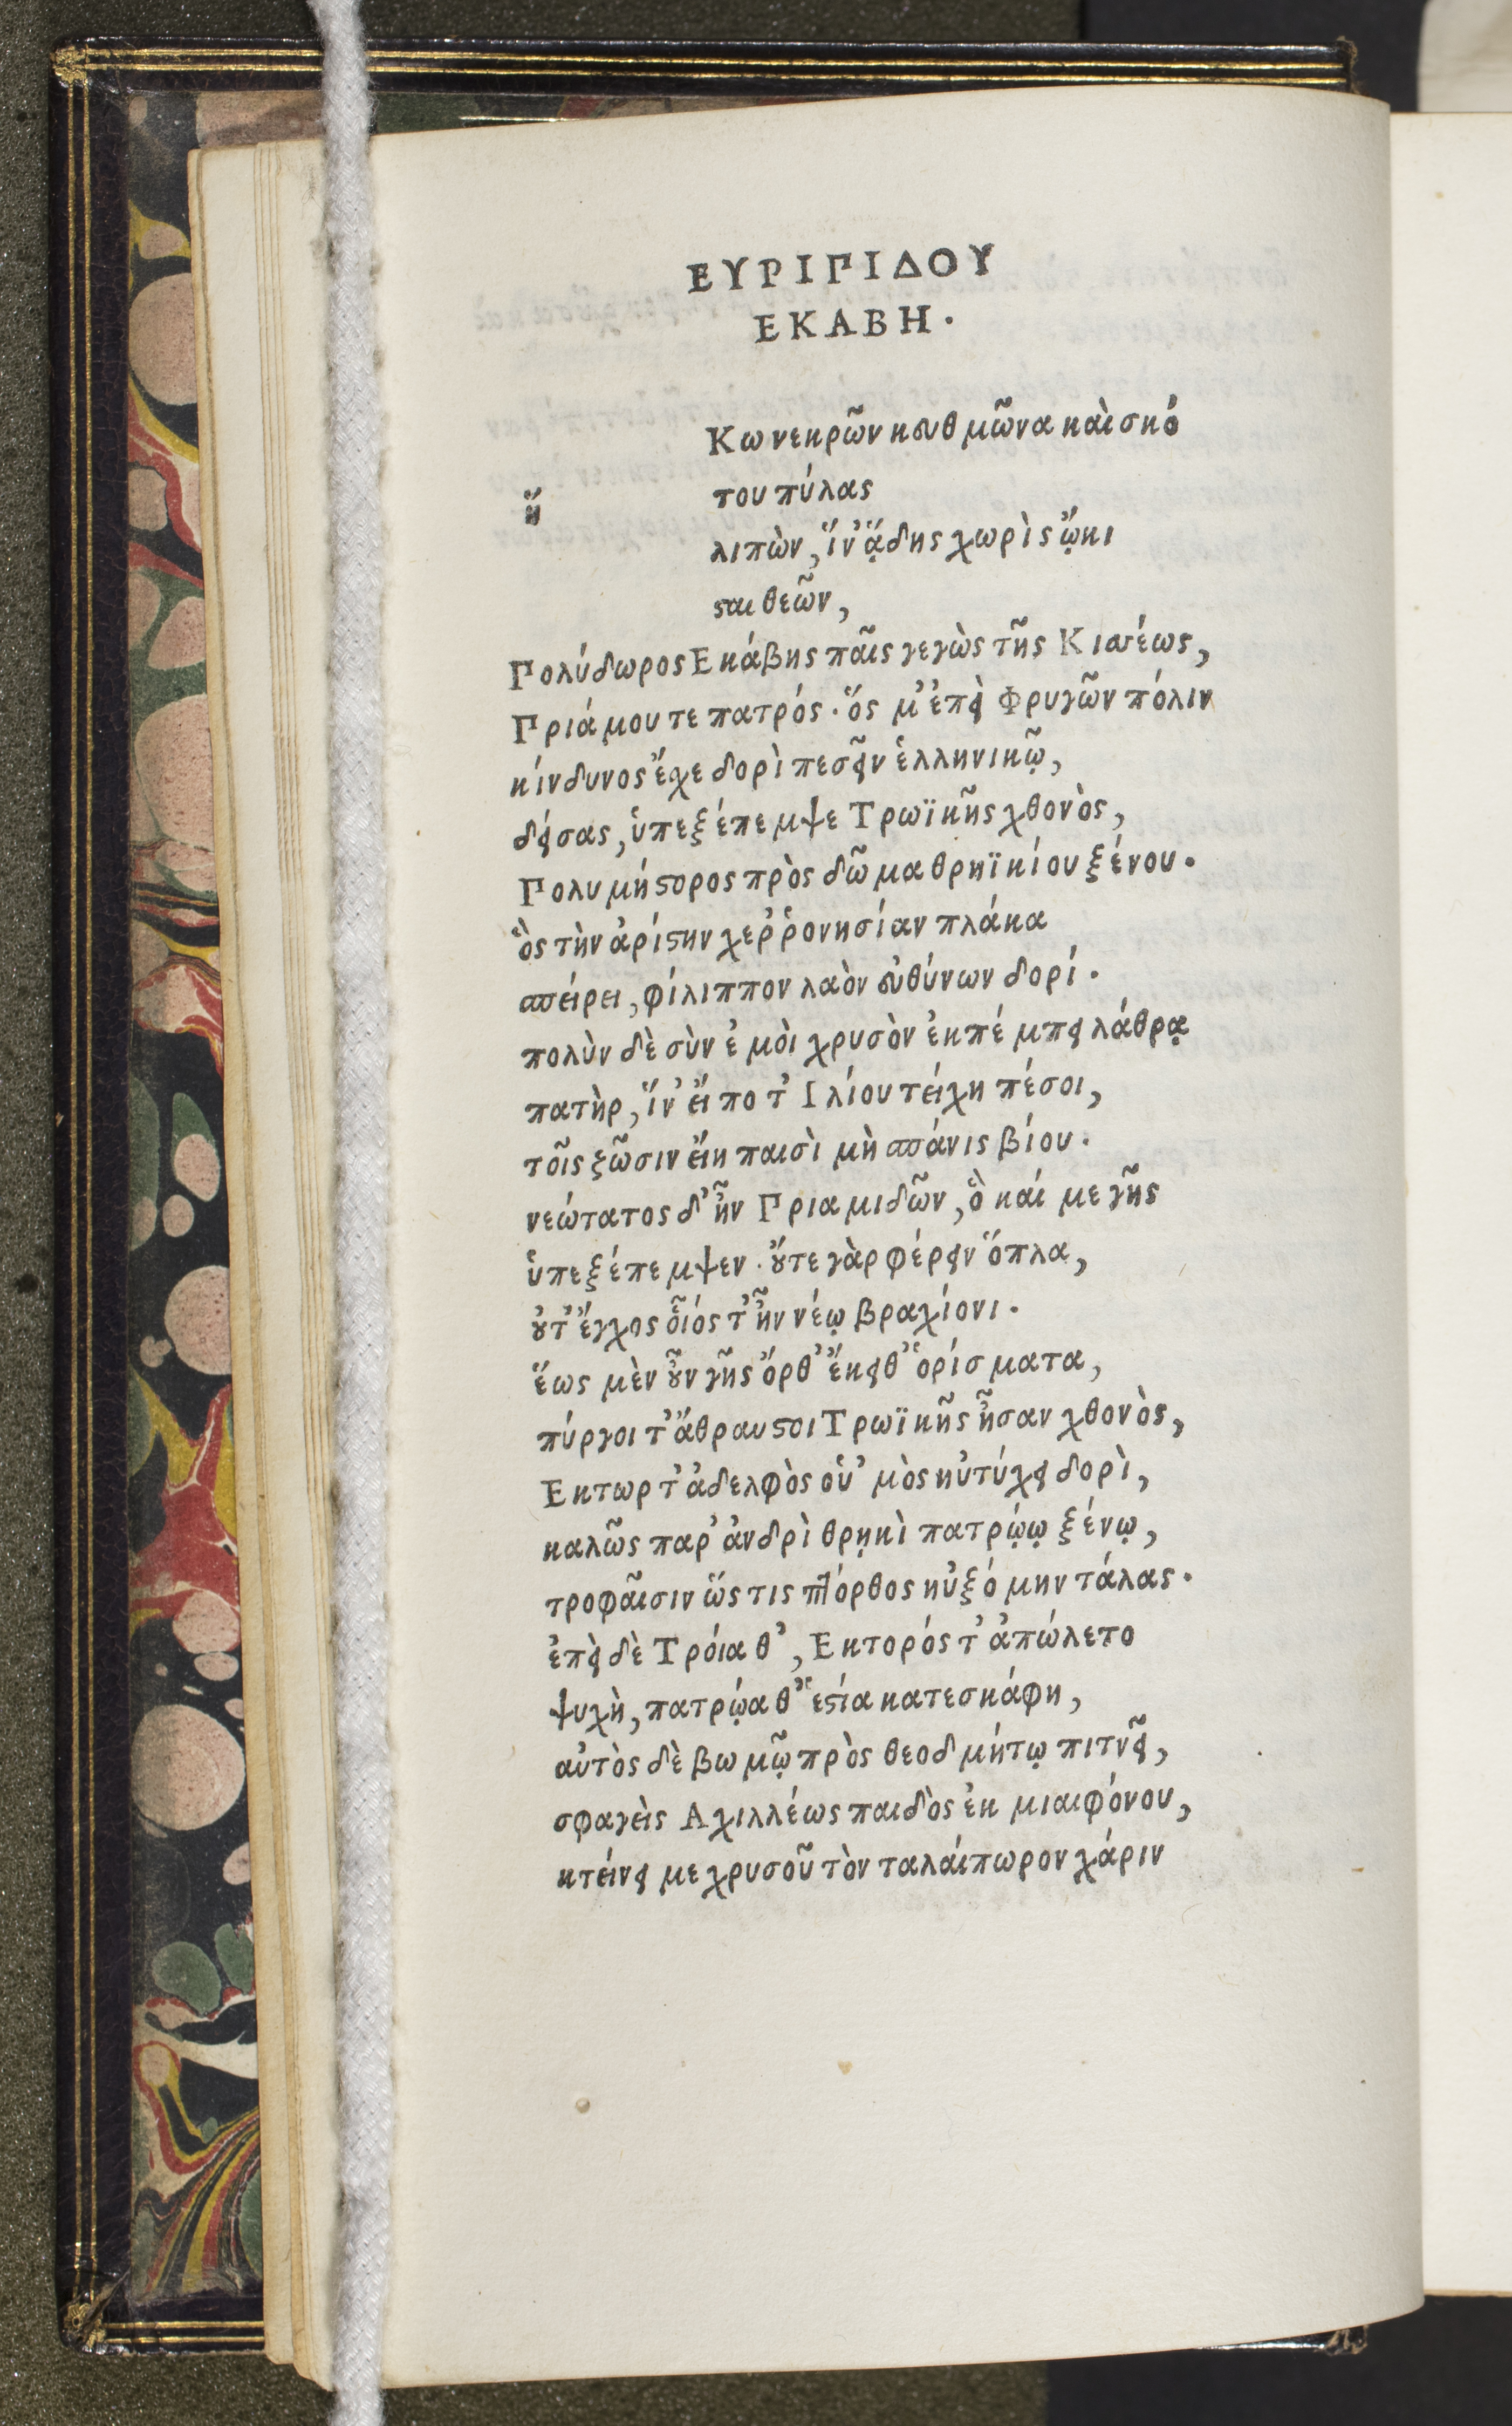 ΕΥΡΙΠΙΔΟΥ
ΕΚΑΒΗ.
Κω νεκρῶν κευθμῶνα καὶ σκό
ἥ του πύλας
λιπὼν, ἵν᾽ ᾅδης χωρὶς ᾤκι
σαι θεῶν,
Πολύδωρος Εκάβης παῖς γεγὼς τῆς Κισέως,
Πριάμου τε πατρός. ὅς μ᾽ ἐπεὶ Φρυγῶν πόλιν
κίνδυνος ἔχε δορὶ πεσεῖν ἑλληνικῷ,
δείσας, ὑπεξέπεμψε Τρωϊκῆς χθονὸς,
Πολυμήστορος πρὸς δῶμα θρηϊκίου ξένου.
ὃς τὴν ἀρίστην χερῤῥονησίαν πλάκα
σπείρει, φίλιππον λαὸν εὐθύνων δορί.
πολὺν δὲ σὺν ἐμὸι χρυσὸν ἐκπέμπει λάθρᾳ
πατὴρ, ἵν᾽ εἴ ποτ᾽ Ιλίου τείχη πέσοι,
τοῖς ζῶσιν εἴη παισὶ μὴ σπάνις βίου.
νεώτατος δ᾽ ἦν Πριαμιδῶν, ὃ καί με γῆς
ὑπεξέπεμψεν. οὔτε γὰρ φέρειν ὅπλα,
οὐτ᾽ ἔγχος οἷός τ᾽ ἦν νέῳ βραχίονι.
ἕως μὲν οὖν γῆς ὄρθ᾽ ἔκειθ᾽ ὁρίσματα,
πύργοι τ᾽ ἄθραυστοι Τρωϊκῆς ἦσαν χθονὸς,
Εκτωρ τ᾽ ἀδελφὸς οὑ᾽ μὸς ηὐτύχει δορὶ,
καλῶς παρ᾽ ἀνδρὶ θρῃκὶ πατρῴῳ ξένῳ,
τροφαῖσιν ὥς τις πτόρθος ηὐξόμην τάλας.
ἐπεὶ δὲ Τρόια θ᾽, Εκτορός τ᾽ ἀπώλετο
ψυχὴ, πατρῴα θ᾽ ἑστία κατεσκάφη,
αὐτὸς δὲ βωμῷ πρὸς θεοδμήτῳ πιτνεῖ,
σφαγεὶς Αχιλλέως παιδὸς ἐκ μιαιφόνου,
κτείνει με χρυσοῦ τὸν ταλαίπωρον χάριν